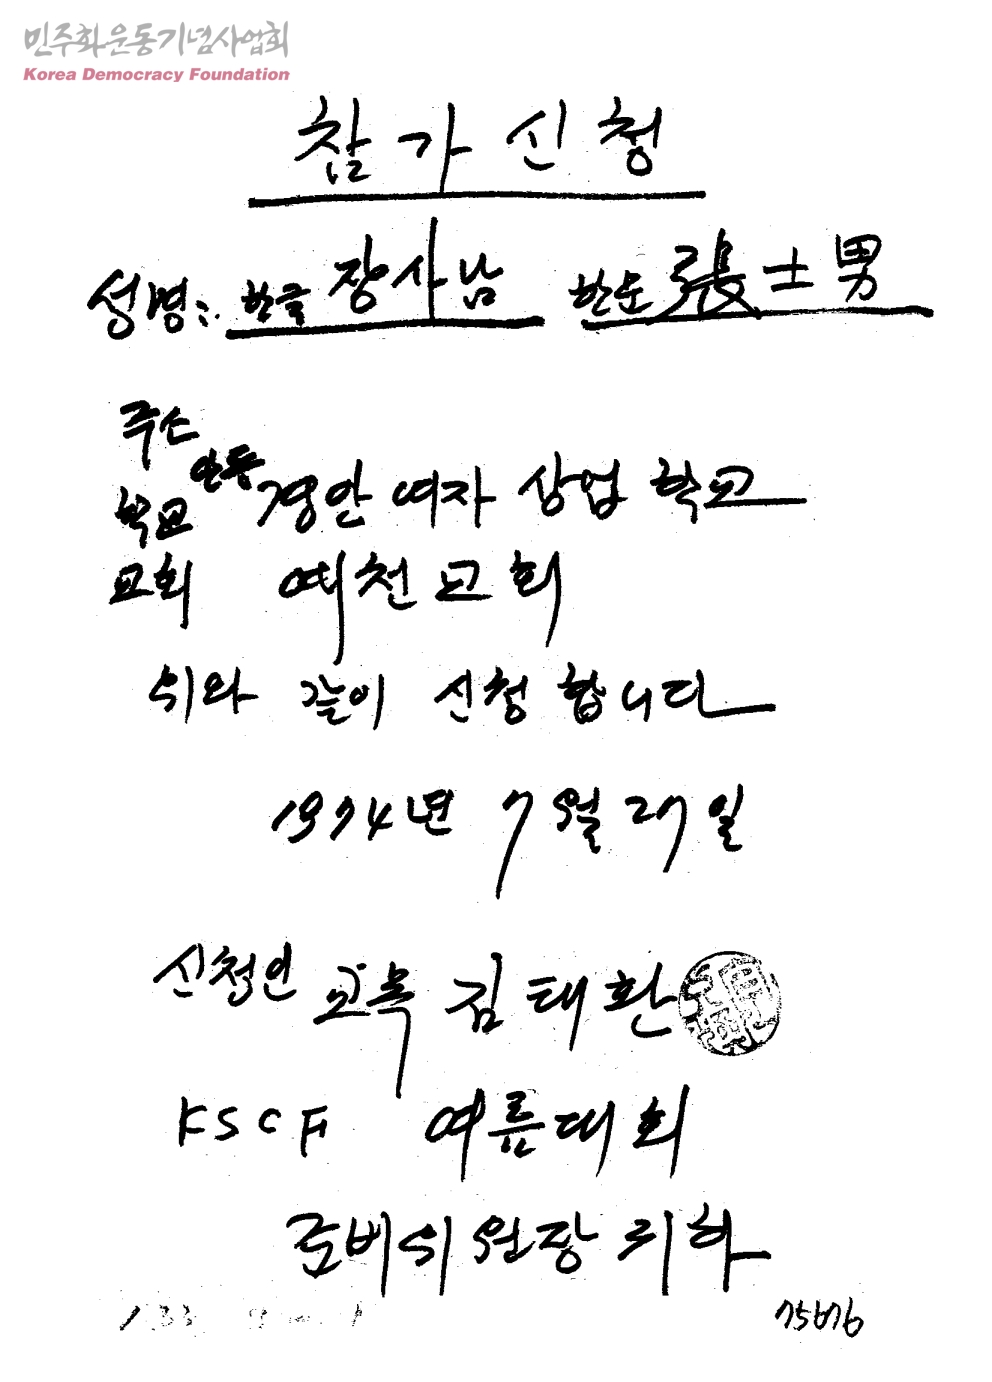 민주화운동기념사업회
Korea Democracy Foundation
참가신청
성명: 한글 장사남 한문 張士男
주소
안동
학교 경안 여자 상업 학교
교회 예천교회
위와 같이 신청합니다
1974년 7월 27일
신청인 교목 김태환
KSCF 여름대회
준비위원장 귀하
75676